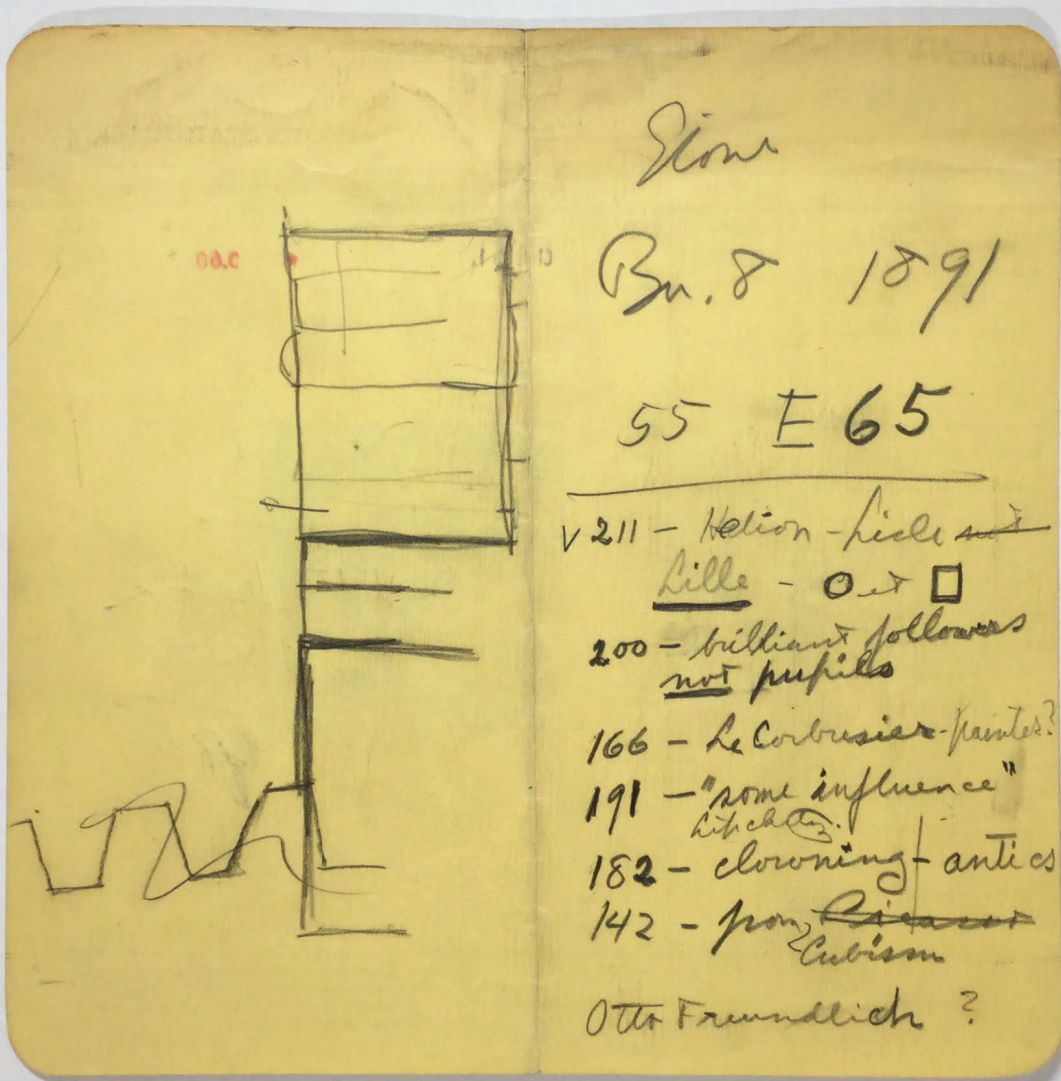 Bu. 8 1891
55 E 65
v 211 – Helion – Lisle not
Lille – O et □
200 – brilliant followers
not pupils
166 – Le Corbusier – painter?
191 – "some influence"
Lipchitz
182 – clowning – antics
142 – from Picasso
Cubism
Otto Freundlich ?